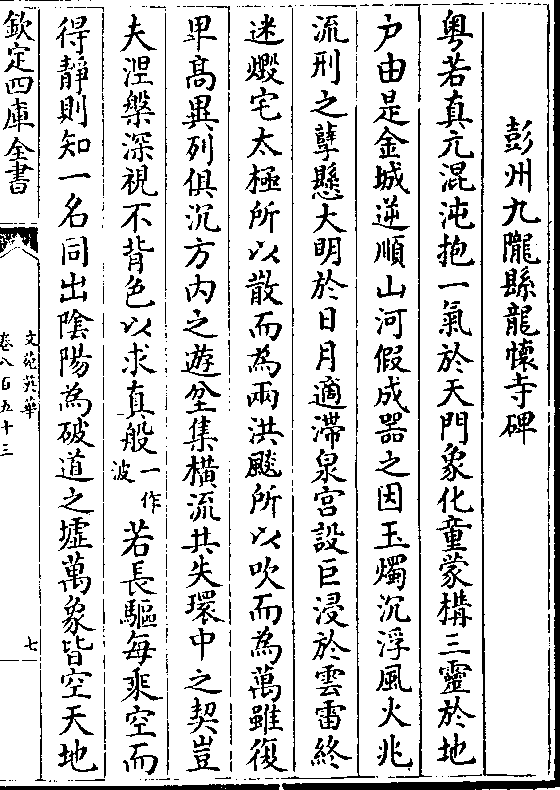 彭州九隴縣龍懷寺碑
粤若真元混沌抱一氣於天門象化童蒙構三靈於地
户由是金城逆順山河假成器之因玉燭沉浮風火兆
流刑之孽懸大明於日月適滯泉宫設巨浸於雲雷終
迷燬宅太極所以散而為兩洪飈所以吹而為萬雖復
卑髙異列俱沉方内之遊坌集横流共失環中之契豈
夫涅槃深視不背色以求真般一作波若長驅每乘空而
得靜則知一名同出陰陽為破道之墟萬象皆空天地
欽定四庫全書
文苑英華
卷八百五十三
七